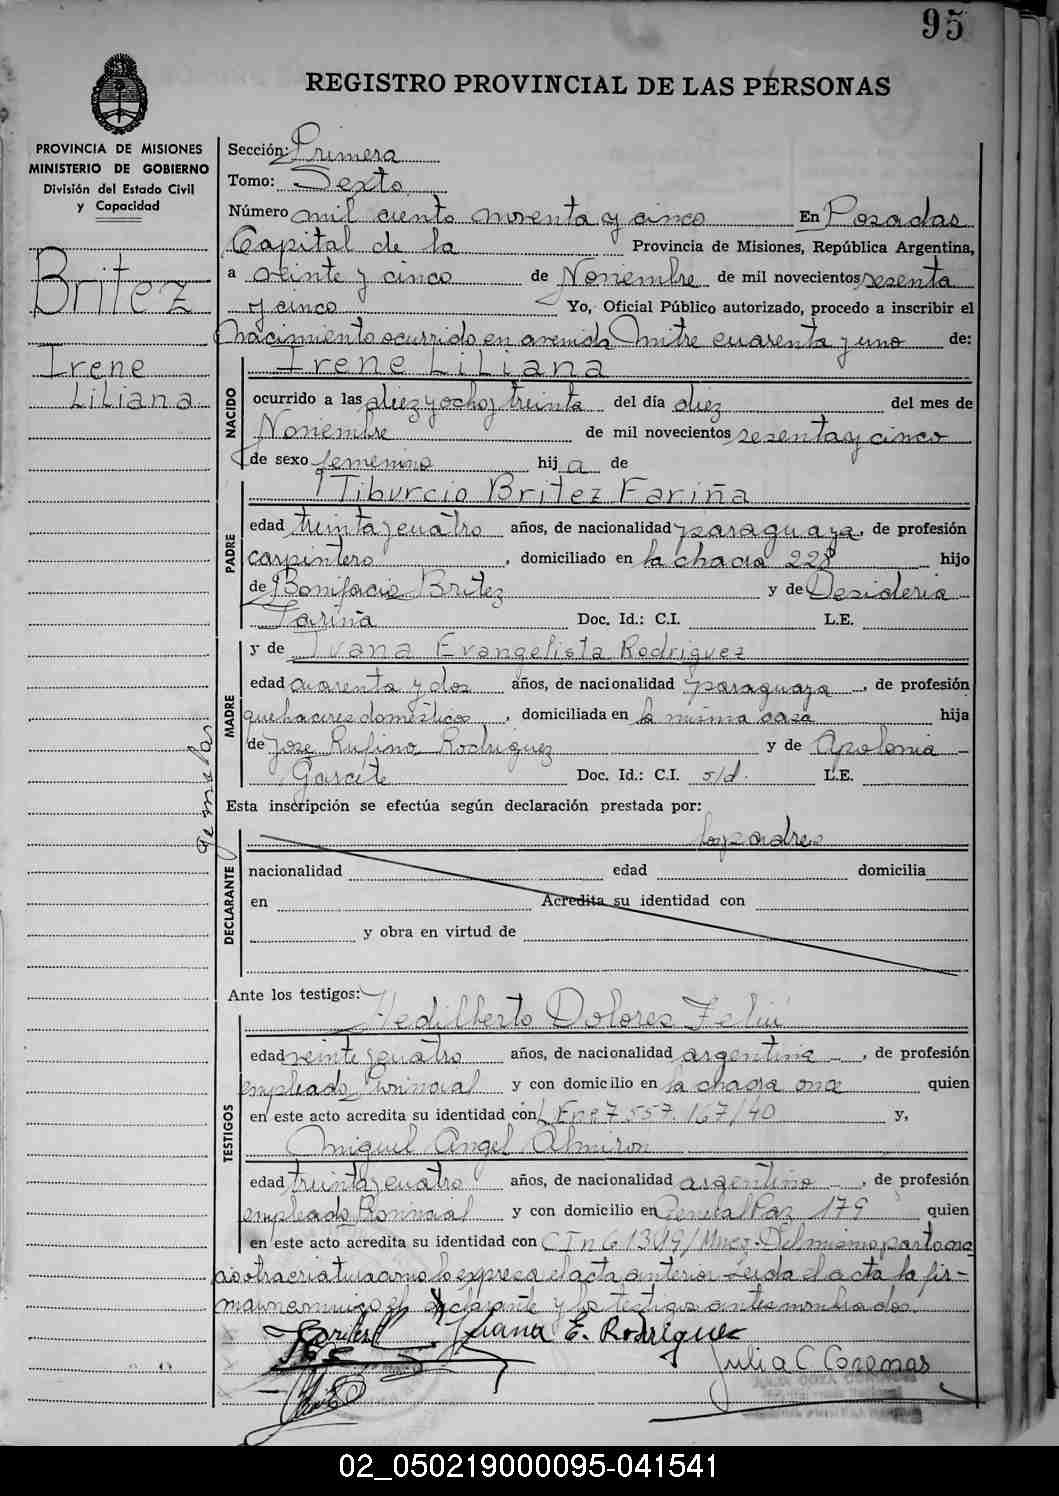 95
REGISTRO PROVINCIAL DE LAS PERSONAS
PROVINCIA DE MISIONES
MINISTERIO DE GOBIERNO
División del Estado Civil
y Capacidad
Britez
Irene
Liliana
gemelas
Sección: Primera
Tomo: Sexto
Número mil ciento noventa y cinco En Posadas
Capital de la Provincia de Misiones, República Argentina,
a veinte y cinco de Noviembre de mil novecientos sesenta
y cinco Yo, Oficial Público autorizado, procedo a inscribir el
nacimiento ocurrido en avenida Mitre cuarenta y uno de:
NACIDO
Irene Liliana
ocurrido a las diez y ocho y treinta del día diez del mes de
Noviembre de mil novecientos sesenta y cinco
de sexo femenino hij a de
PADRE
Tiburcio Britez Fariña
edad treinta y cuatro años, de nacionalidad paraguaya, de profesión
carpintero, domiciliado en la chacra 228 hijo
de Bonifacio Britez y de Desideria
Fariña Doc. Id.: C.I. L.E.
MADRE
y de Juana Evangelista Rodriguez
edad cuarenta y dos años, de nacionalidad paraguaya, de profesión
quehaceres domésticos, domiciliada en la misma casa hija
de Jose Rufino Rodriguez y de Apolonia
Garcete Doc. Id.: C.I. s/d. L.E.
Esta inscripción se efectúa según declaración prestada por:
DECLARANTE
los padres
nacionalidad edad domicilia
en Acredita su identidad con
y obra en virtud de
Ante los testigos:
TESTIGOS
Hedilberto Dolores Feliú
edad veinte y cuatro años, de nacionalidad argentina, de profesión
empleado provincial y con domicilio en la chacra once quien
en este acto acredita su identidad con L E nº 7.557.167/40 y,
Miguel Angel Almiron
edad treinta y cuatro años, de nacionalidad argentino, de profesión
empleado Provincial y con domicilio en General Paz 179 quien
en este acto acredita su identidad con C I nº Del mismo parto na
ció otra criatura como lo expresa el acta anterior Leida el acta la fir-
man conmigo el declarante y los testigos antes nombrados.
Juana E. Rodríguez
Julia C Coremas
02_050219000095-041541